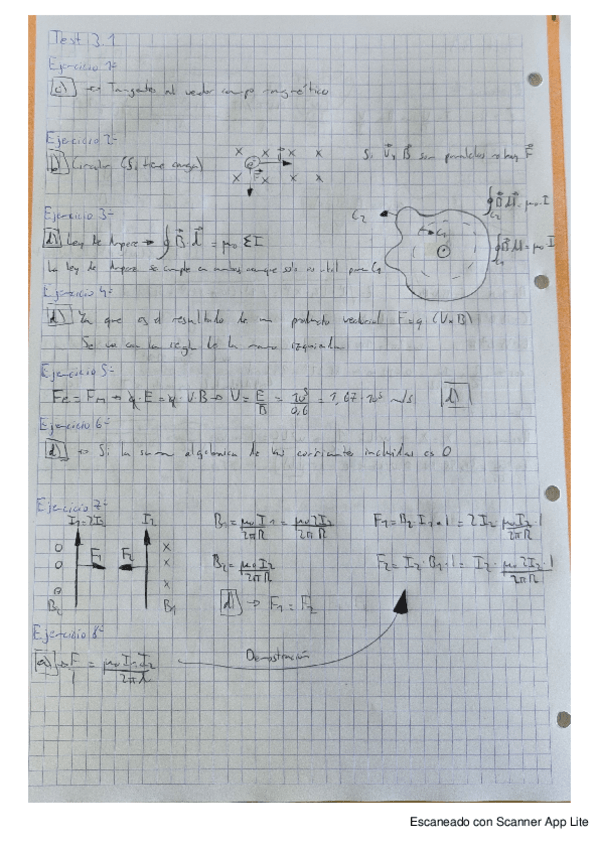 Test 3.1
Ejercicio 1:-
c) ↔ Tangente al vector campo magnético
Ejercicio 2:-
b) Circular (Si tiene carga)
x x x x
x x x x
F
Si V y B son paralelos no hay F
Ejercicio 3:-
d) Ley de Ampere → ∮ B dl = μ₀ ΣI
C₂
C₁
∮ B dl = μ₀ I
C₂
∮ B dl = μ₀ I
C₁
La Ley de Ampere se cumple en ambos aunque solo es útil para C₁
Ejercicio 4:-
d) Ya que es el resultado de un producto vectorial F = q (V×B)
Se ve con la regla de la mano izquierda
Ejercicio 5:-
Fe = Fm → q·E = q·V·B → V = E/B = 10⁵/0,6 = 1,67·10⁵ m/s d)
Ejercicio 6:-
d) ↔ Si la suma algebraica de las corrientes incluidas es 0
Ejercicio 7:-
I₁=2I₂ I₂
F₁ F₂
B₂ B₁
B₁ = μ₀ I₁/2πR = μ₀ 2I₂/2πR
F₁ = B₂·I₁·l = 2I₂ μ₀ I₂·l/2πR
B₂ = μ₀ I₂/2πR
F₂ = I₂·B₁·l = I₂·μ₀ 2I₂·l/2πR
d) → F₁ = F₂
Ejercicio 8:-
a) → F/l = μ₀ I₁ I₂/2πR
Demostración
Escaneado con Scanner App Lite